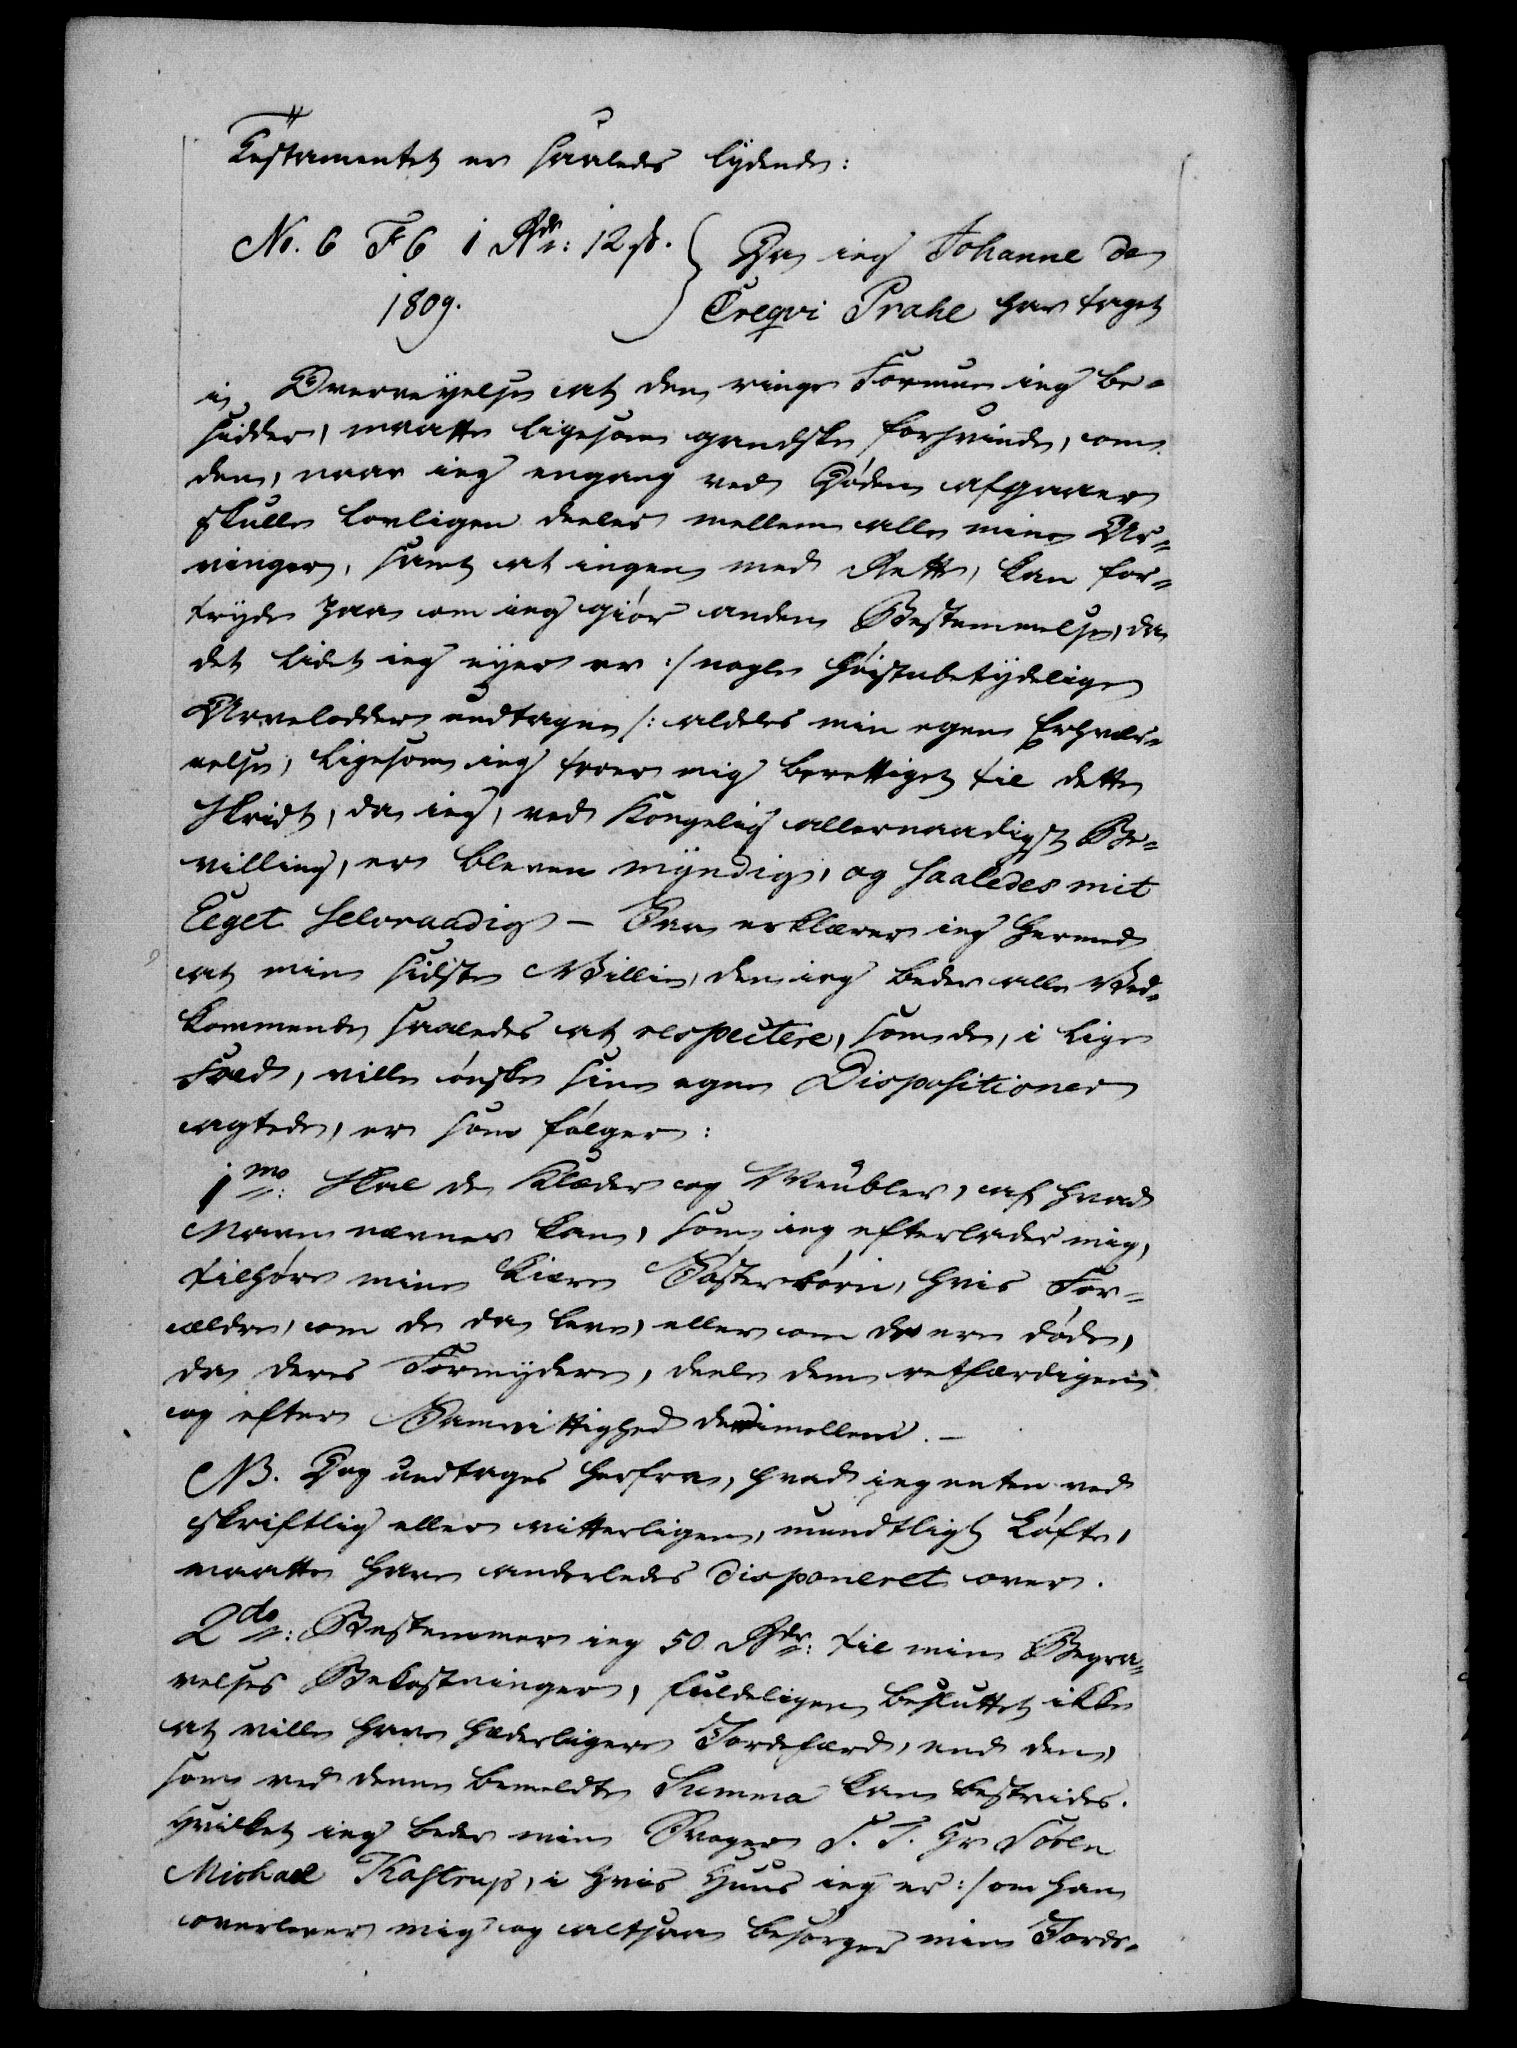 Testamentet er saaledes lydende:
No. 6 F 6 1 Rdr: 12 sk.
1809.
Da ieg Johanne de
Creqvi Prahe har taget
i Overveyelse at den ringe Formue ieg be-
sidder, maatte ligesom gandske forsvinde, om
den, naar ieg engang ved Døden afgaaer
skulle lovligen deeles mellem alle mine Ar-
vinger, samt at ingen med Rette, kan for-
tryde paa om ieg giør anden Bestemmelse, da
det lidet ieg eyer er :/ nogle høistubetydelige
Arvelodder undtagen /: aldeles min egen Erhver-
velse, ligesom ieg troer mig berettiget til dette
Skridt, da ieg, ved Kongelig allernaadigst Be-
villing, er bleven myndig, og saaledes mit
Eeget selvraadig - Saa erklærer ieg hermed
at min sidste Villie, den ieg beder alle Ved-
kommende saaledes at respectere, som de, i lige
Fald, ville ønske sine egne Dispositioner
agtede, er som følger:
1mo: Skal de Klæder og Meubler, af hvad
Navn nævnes kan, som ieg efterlader mig,
tilhøre mine kiære Søsterbørn, hvis For-
ældre, om de da leve, eller om de ere døde,
da deres Formyndere, deele dem retfærdigen
og efter Samvittighed derimellem. -
NB. Dog undtages herfra, hvad ieg enten ved
skriftlig eller vitterligen, mundtligt Løfte,
maatte have anderledes disponeret over.
2do: Bestemmer ieg 50 Rdr: til min Begra-
velses Bekostninger, fuldeligen besluttet ikke
at ville have hæderligere Jordefærd, end den,
som ved denne bemeldte Summa kan bestrides.
Hvilket ieg beder min Svoger S. T. Hr Søren
Michael Kastrup, i hvis Huus ieg er :/ om han
overlever mig og altsaa besørger min Jorde-